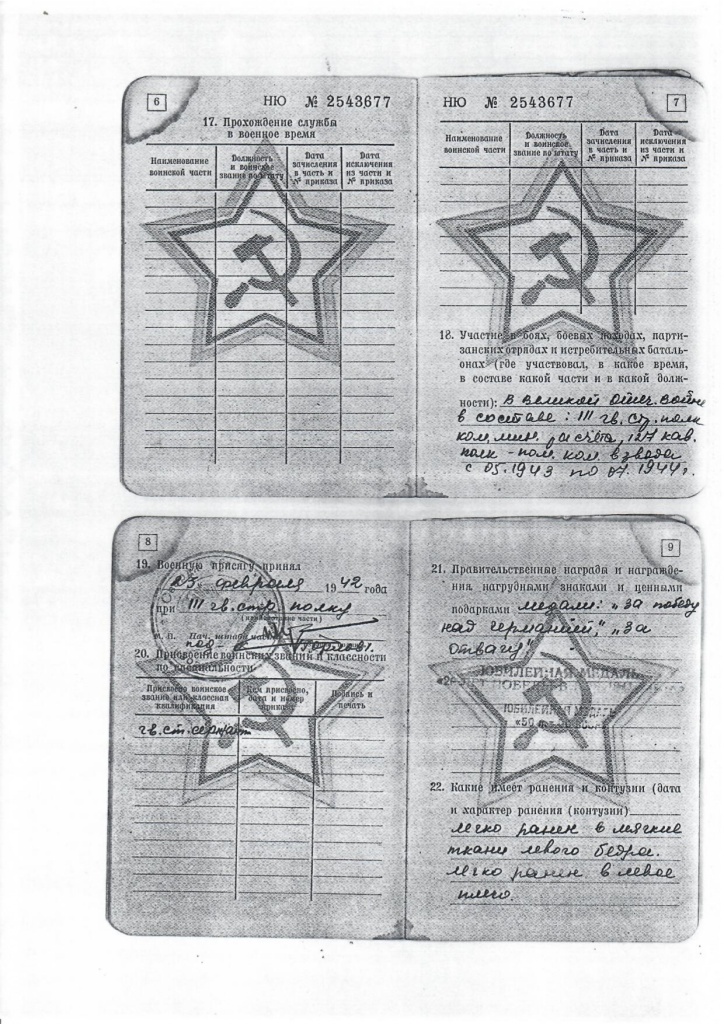 6
НЮ № 2543677
17. Прохождение службы
в военное время
Наименование
воинской части
Должность
и воинское
звание по штату
Дата
зачисления
в часть и
№ приказа
Дата
исключения
из части и
№ приказа
НЮ № 2543677
7
Наименование
воинской части
Должность
и воинское
звание по штату
Дата
зачисления
в часть и
№ приказа
Дата
исключения
из части и
№ приказа
18. Участие в боях, боевых походах, парти-
занских отрядах и истребительных баталь-
онах (где участвовал, в какое время,
в составе какой части и в какой долж-
ности): в Великой Отеч. войне
в составе: III гв. стр. полк
ком. мин. расчёта, 127 кав.
полк - пом. ком. взвода
с 05.1943 по 07.1944 г.
8
19. Военную присягу принял
23 февраля 1942 года
при III гв. стр. полку
(наименование части)
М. П. Нач. штаба части
20. Присвоение воинских званий и классности
по специальности
Присвоено воинское
звание или классная
квалификация
Кем присвоено,
дата и номер
приказа
Подпись и
печать
гв. ст. сержант
9
21. Правительственные награды и награжде-
ния нагрудными знаками и ценными
подарками медали: "За победу
над Германией", "За
отвагу"
ЮБИЛЕЙНАЯ МЕДАЛЬ
ПОБЕДЫ В
ЮБИЛЕЙНАЯ МЕДАЛЬ
«50 лет
22. Какие имеет ранения и контузии (дата
и характер ранения (контузии)
легко ранен в мягкие
ткани левого бедра.
легко ранен в левое
плечо.